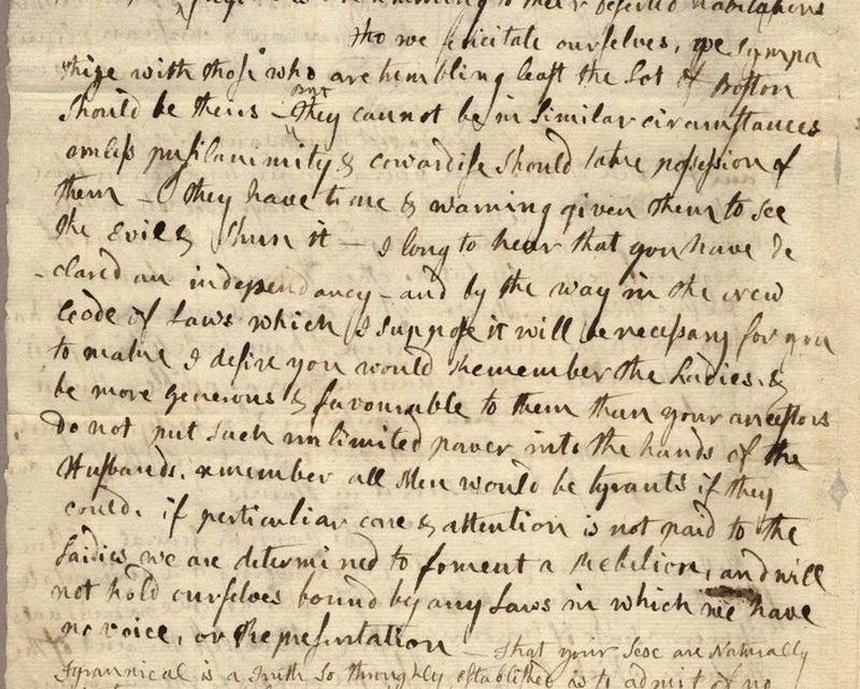 to their deserted habitations
tho we felicitate ourselves, we sympa
thize with those who are trembling least the Lot of Boston
should be theirs - but they cannot be in Similar circumstances
unless pusilanimity & cowardise should take possession of
them - They have time & warning given them to see
the Evil & shun it - I long to hear that you have de
-clared an independancy - and by the way in the new
Code of Laws which I suppose it will be necessary for you
to make I desire you would Remember the Ladies, &
be more generous & favourable to them than your ancestors
Do not put such unlimited power into the hands of the
Husbands. remember all Men would be tyrants if they
could. if perticuliar care & attention is not paid to the
Laidies we are determined to foment a Rebelion, and will
not hold ourselves bound by any Laws in which we have
no voice, or Representation - That your Sex are Naturally
Tyrannical is a Truth so throughly established as to admit of no